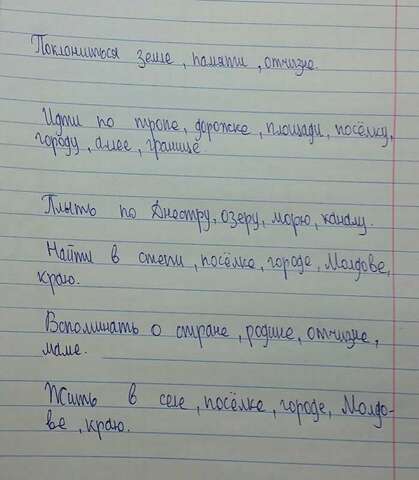 Поклониться земле, памяти, отчизне.
Идти по тропе, дорожке, площади, посёлку,
городу, алее, границе.
Плыть по Днестру, озеру, морю, каналу.
Найти в степи, посёлке, городе, Молдове,
краю.
Вспоминать о стране, родине, отчизне,
маме.
Жить в селе, посёлке, городе, Молдо-
ве, краю.